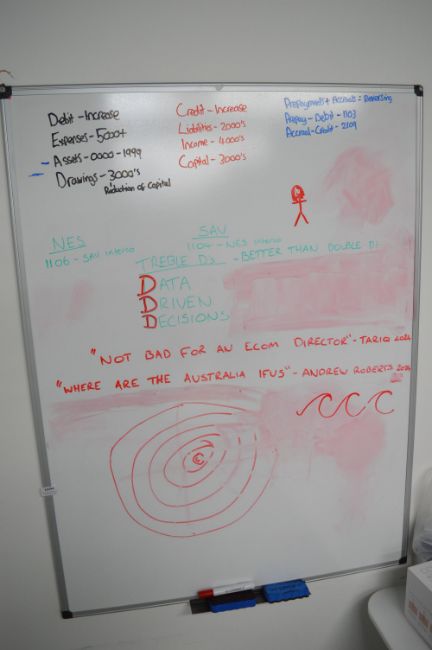 Debit - Increase
Expenses - 5000+
- Assets - 0000 - 1999
- Drawings - 3000's
Reduction of Capital
Credit - Increase
Liabilites - 2000's
Income - 4000's
Capital - 3000's
Prepayments + Accruals = Reversing
Prepay - Debit - 1103
Accrual - Credit - 2109
NES
1106 - SAV interco
SAV
1104 - NES interco
TREBLE D's - BETTER THAN DOUBLE D!
DATA
DRIVEN
DECISIONS
"NOT BAD FOR AN ECOM DIRECTOR" - TARIQ 2024
"WHERE ARE THE AUSTRALIA IFUS" - ANDREW ROBERTS 2024